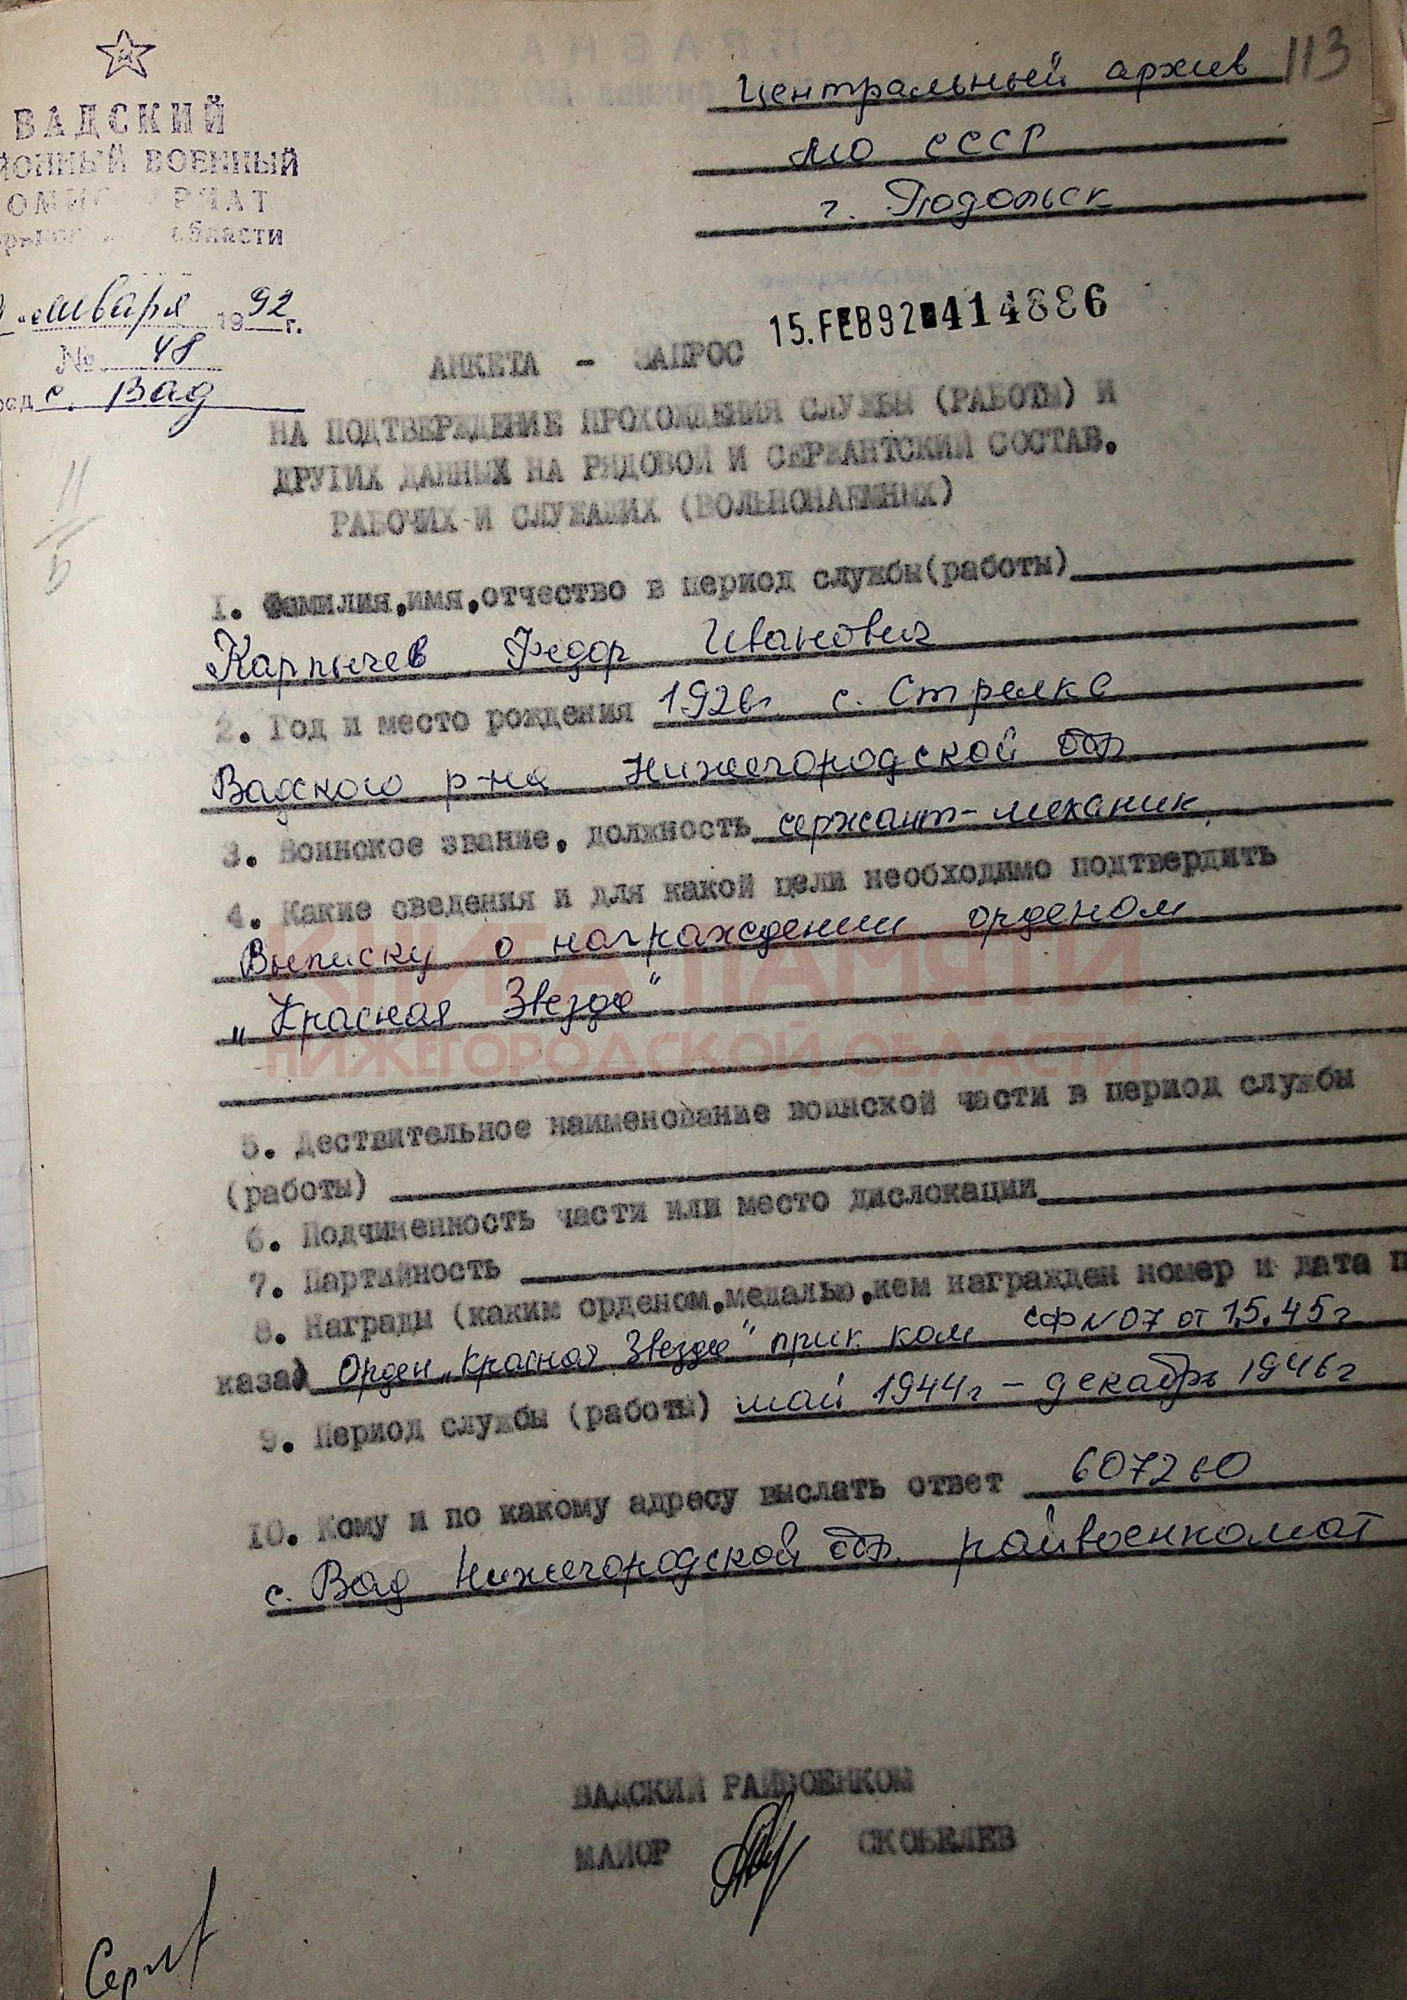 113
ВАДСКИЙ
ЙОННЫЙ ВОЕННЫЙ
области
января 1992 г.
№ 48
с. Вад
Центральный архив
МО СССР
г. Подольск
15.FEB92 414886
АНКЕТА - ЗАПРОС
НА ПОДТВЕРЖДЕНИЕ ПРОХОЖДЕНИЯ СЛУЖБЫ (РАБОТЫ) И
ДРУГИХ ДАННЫХ НА РЯДОВОЙ И СЕРЖАНТСКИЙ СОСТАВ.
РАБОЧИХ И СЛУЖАЩИХ (ВОЛЬНОНАЕМНЫХ)
11
Б
1. Фамилия,имя,отчество в период службы(работы)
Карпычев Федор Иванович
2. Год и место рождения 1926г. с. Стрелка
Вадского р-на Нижегородской обл.
3. Воинское звание, должность сержант-механик
4. Какие сведения и для какой цели необходимо подтвердить
Выписку о награждении орденом
„Красная Звезда"
КНИГА ПАМЯТИ
НИЖЕГОРОДСКОЙ ОБЛАСТИ
5. Дествительное наименование воинской части в период службы
(работы)
6. Подчиненность части или место дислокации
7. Партийность
8. Награды (каким орденом,медалью,кем награжден номер и дата п
каза) Орден „Красная Звезда" прик. ком СФ №07 от 1.5.45г
9. Период службы (работы) май 1944г - декабрь 1946г
10. Кому и по какому адресу выслать ответ 607260
с. Вад Нижегородской обл. райвоенкомат
ВАДСКИЙ РАЙВОЕНКОМ
МАЙОР СКОБЕЛЕВ